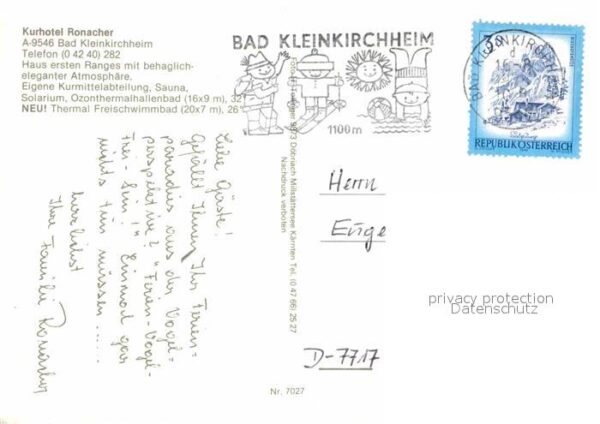 Kurhotel Ronacher
A-9546 Bad Kleinkirchheim
Telefon (0 42 40) 282
Haus ersten Ranges mit behaglich-
eleganter Atmosphäre.
Eigene Kurmittelabteilung, Sauna,
Solarium, Ozonthermalhallenbad (16x9 m), 32°
NEU! Thermal Freischwimmbad (20x7 m), 26°
BAD KLEINKIRCHHEIM
1100 m
BAD KLEINKIRCHHEIM
3 S
REPUBLIK ÖSTERREICH
Liebe Gäste!
Gefällt Ihnen Ihr Ferien=
paradies aus der Vogel=
perspektive? "Ferien-Vogel-
frei-Sein!" Einmal gar
nichts tun müssen .....
herzlichst
Ihre Familie Ronacher
9873 Döbriach Millstättersee Kärnten Tel. (0 47 66) 25 27
Nachdruck verboten
Herrn
Enge
D-7717
privacy protection
Datenschutz
Nr. 7027